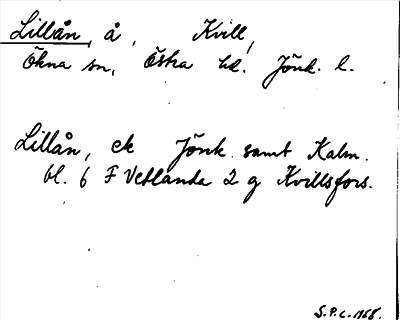 Lillån, å, Kvill,
Ökna sn, Östra hd. Jönk. l.
Lillån, ek Jönk. samt Kalm.
bl. 6 F Vetlanda 2 g Kvillsfors.
S.P.C. 1968.